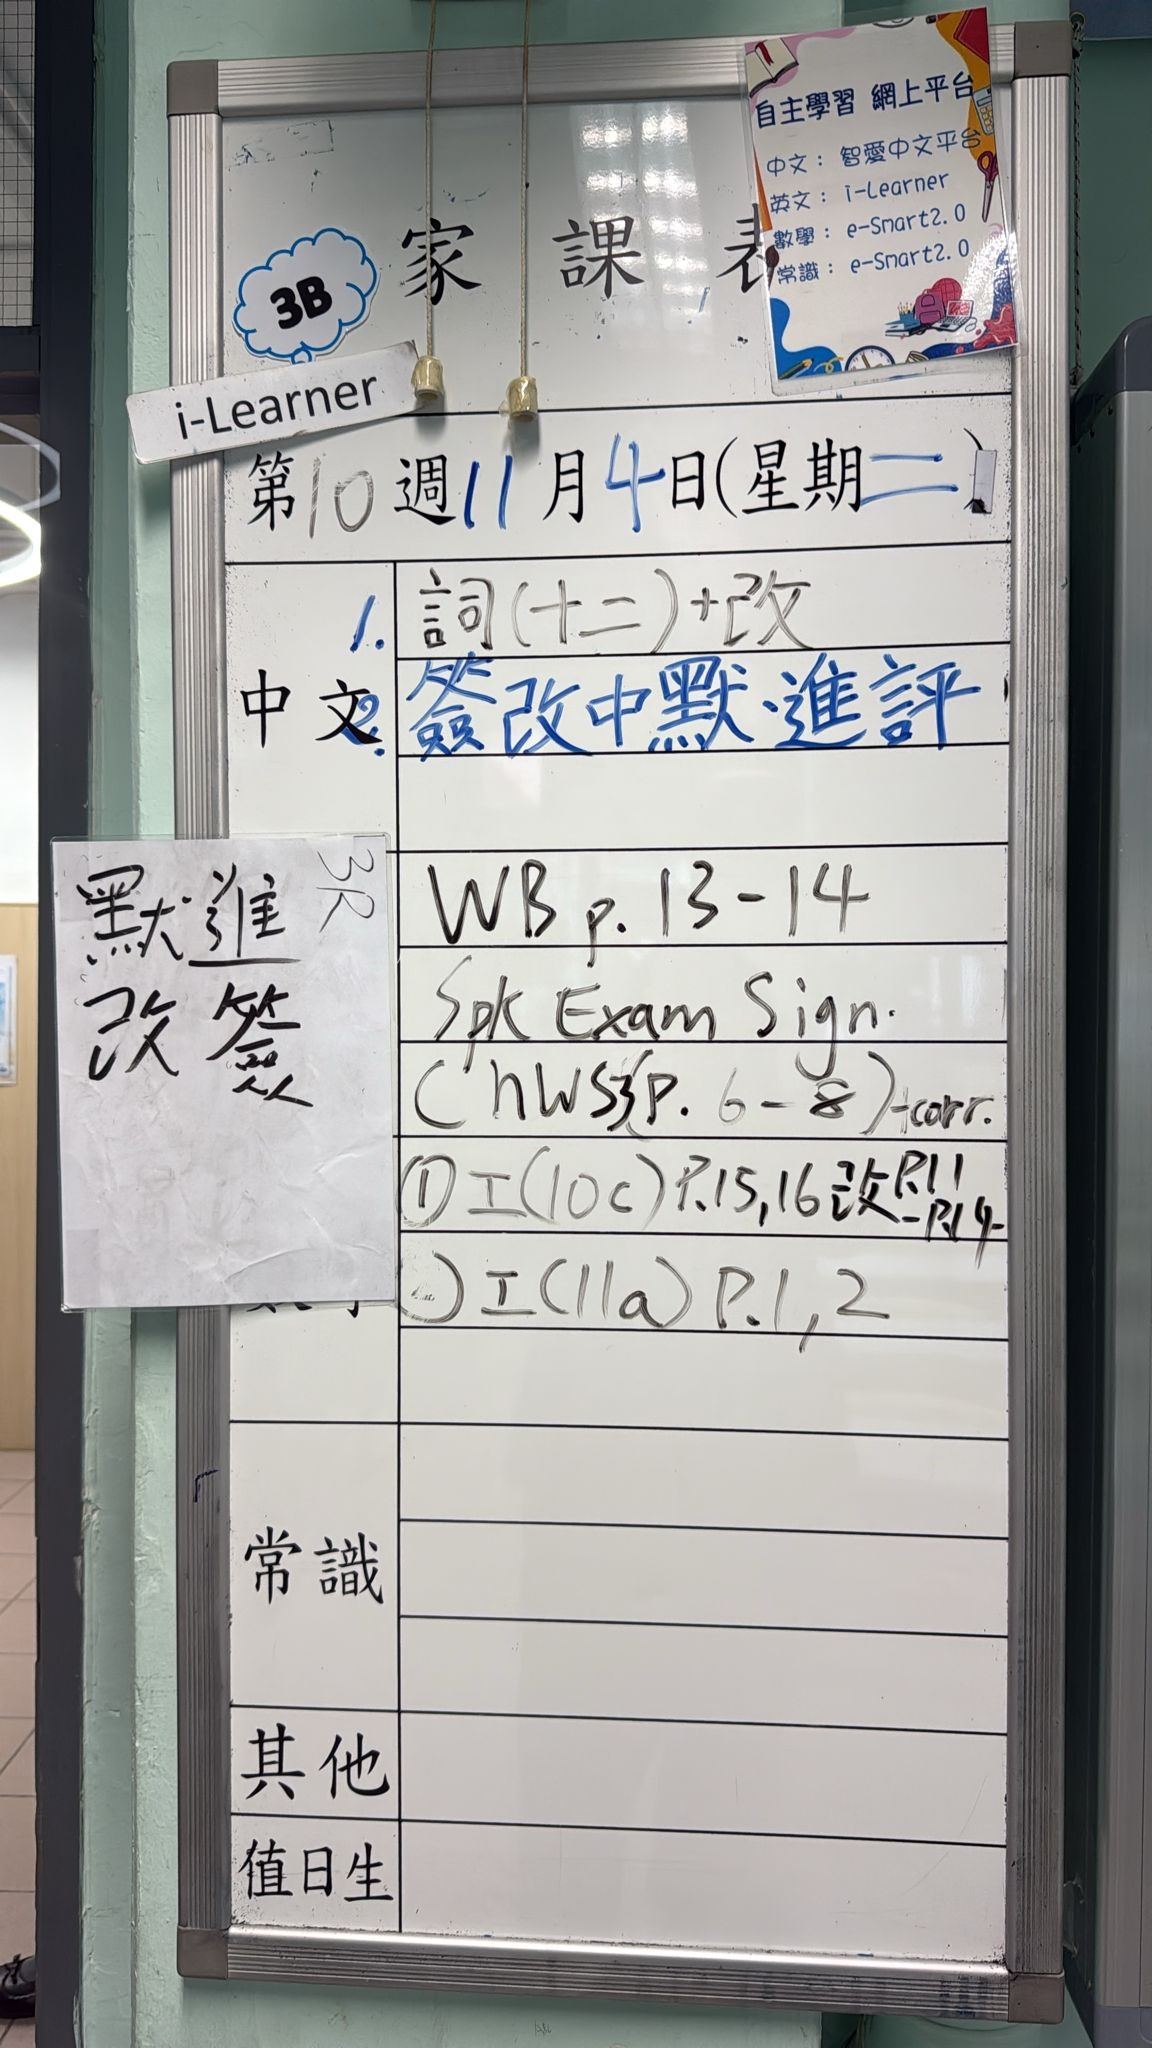 自主學習 網上平台
中文：智愛中文平台
英文：i-Learner
數學：e-Smart2.0
常識：e-Smart2.0
3B
家課表
i-Learner
第10週11月4日(星期二)
中文
1. 詞(十二)+改
2. 簽改中默、進評
3R
默進
改簽
WB p. 13-14
Spk Exam Sign.
(NWS3 P. 6-8)+corr.
① 工(10c) P.15,16 改P.11
-P.14
工(11a) P.1,2
常識
其他
值日生